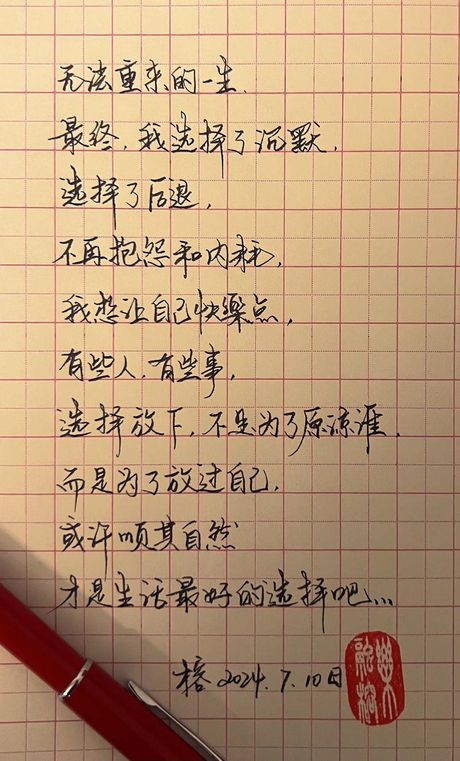 无法重来的一生.
最终,我选择了沉默,
选择了后退,
不再抱怨和内耗,
我想让自己快樂点,
有些人,有些事,
选择放下,不是为了原凉谁,
而是为了放过自己,
或许顺其自然
才是生活最好的选择吧...
榕 2024.7.10日